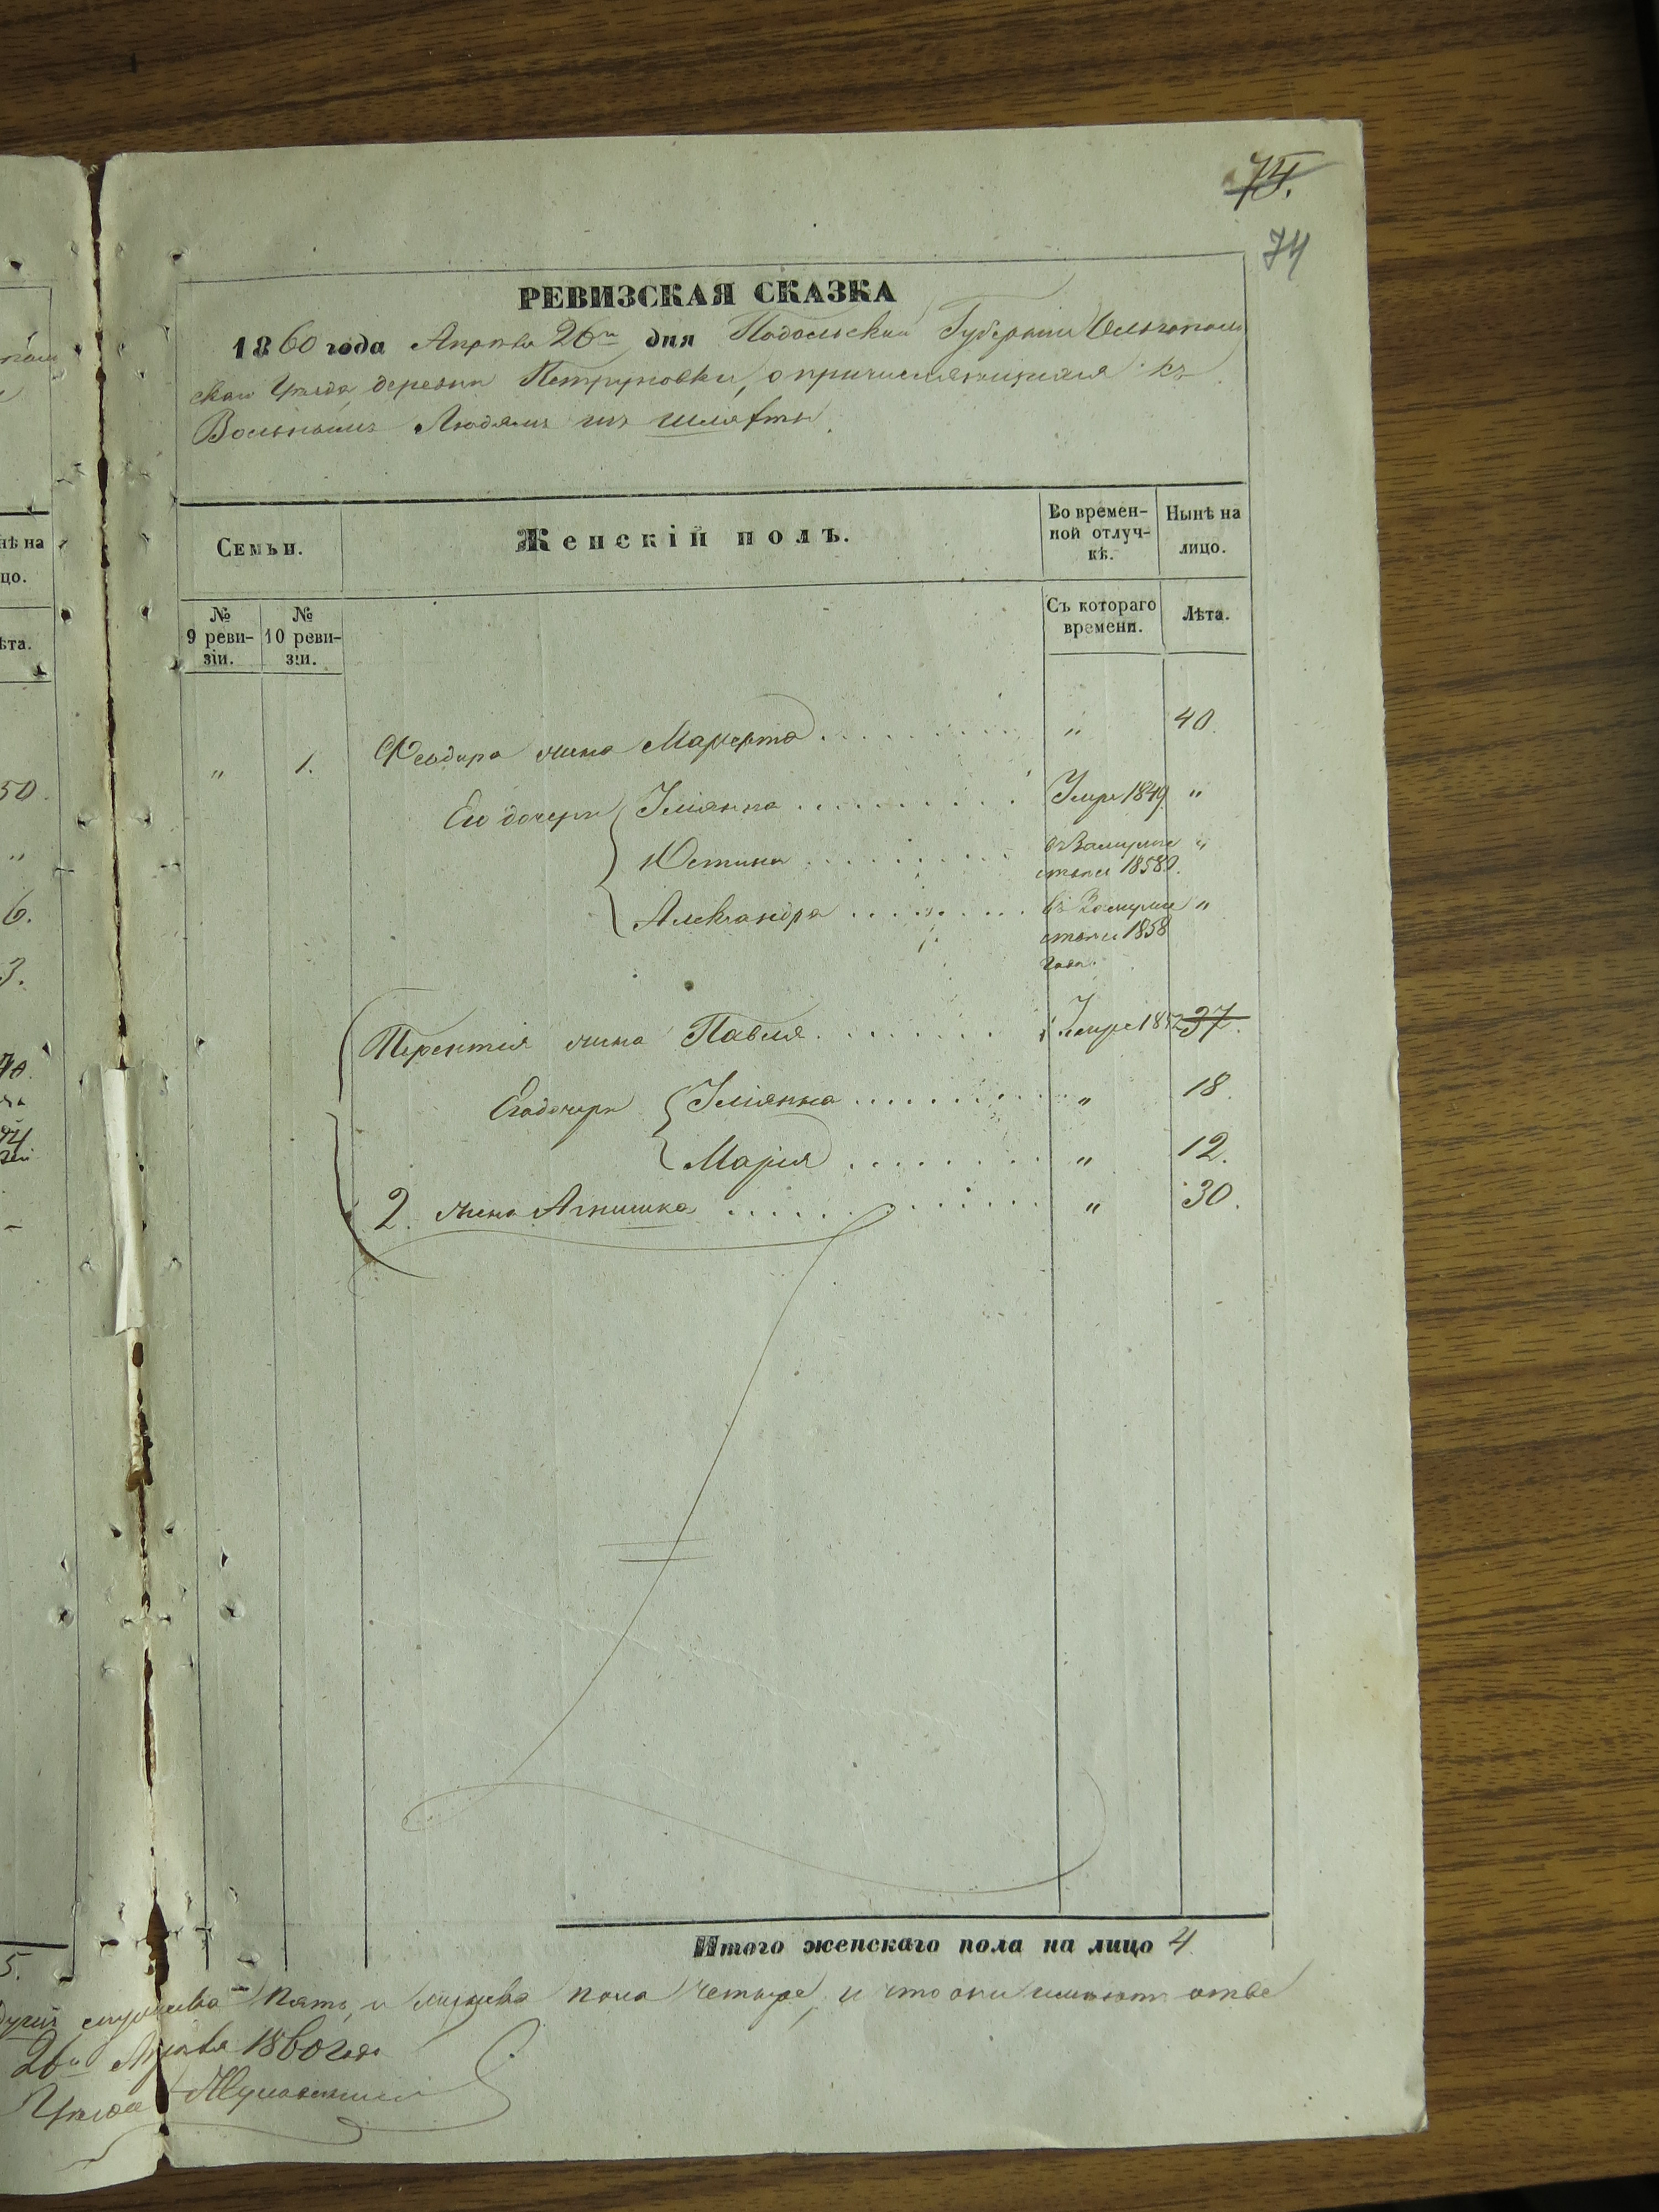 75.
74
РЕВИЗСКАЯ СКАЗКА
1860 года Апреля 26го дня Подольской Губернии Ольгополь
скаго Уѣзда деревни Петруновки, о причисляющихся къ
Вольнымъ Людямъ изъ шляхты.
нѣ на
цо.
ѣта.
Семьи.
Женскій полъ.
Во времен-
ной отлуч-
кѣ.
Нынѣ на
лицо.
№
9 реви-
зіи.
№
10 реви-
зіи.
Съ котораго
времени.
Лѣта.
" 1. Феодора жена Маргарта . . . . . . . . " 40.
50.
Его дочери Уліянна . . . . . . . . . . Умре 1849 "
Юстина . . . . . . . . въ Замуже "
ствѣ 1858.
6. Александра . . . . . . . въ Замуже "
ствѣ 1858
года.
3.
Терентія жена Павля . . . . . . . Умре 1852 37.
Его дочери Уліянна . . . . . . . . . " 18.
Марія . . . . . . . " 12.
2. жена Агнишка . . . . . . . . . . " 30.
Итого женскаго пола на лицо 4.
5.
мужеска пять, и женска пола четыре, и что они имѣютъ
26го Апреля 1860 года
Уѣзда